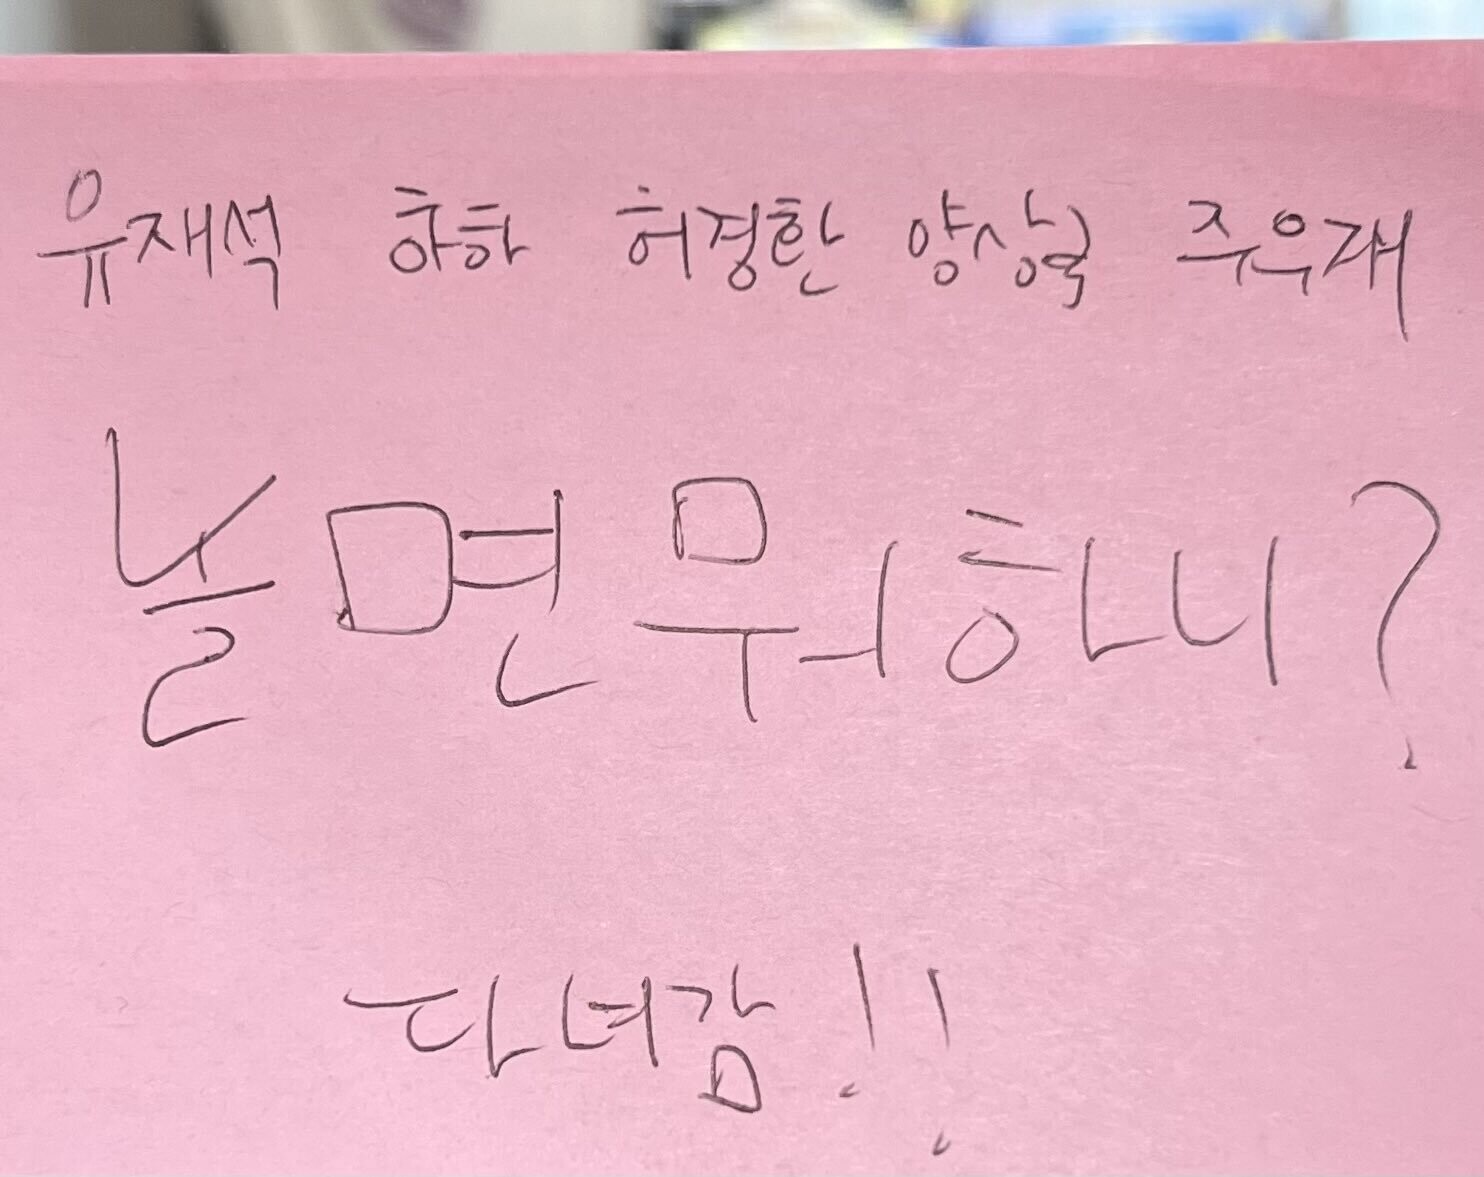 유재석 하하 허경환 양상국 주우재
놀면뭐하니?
다녀감!!